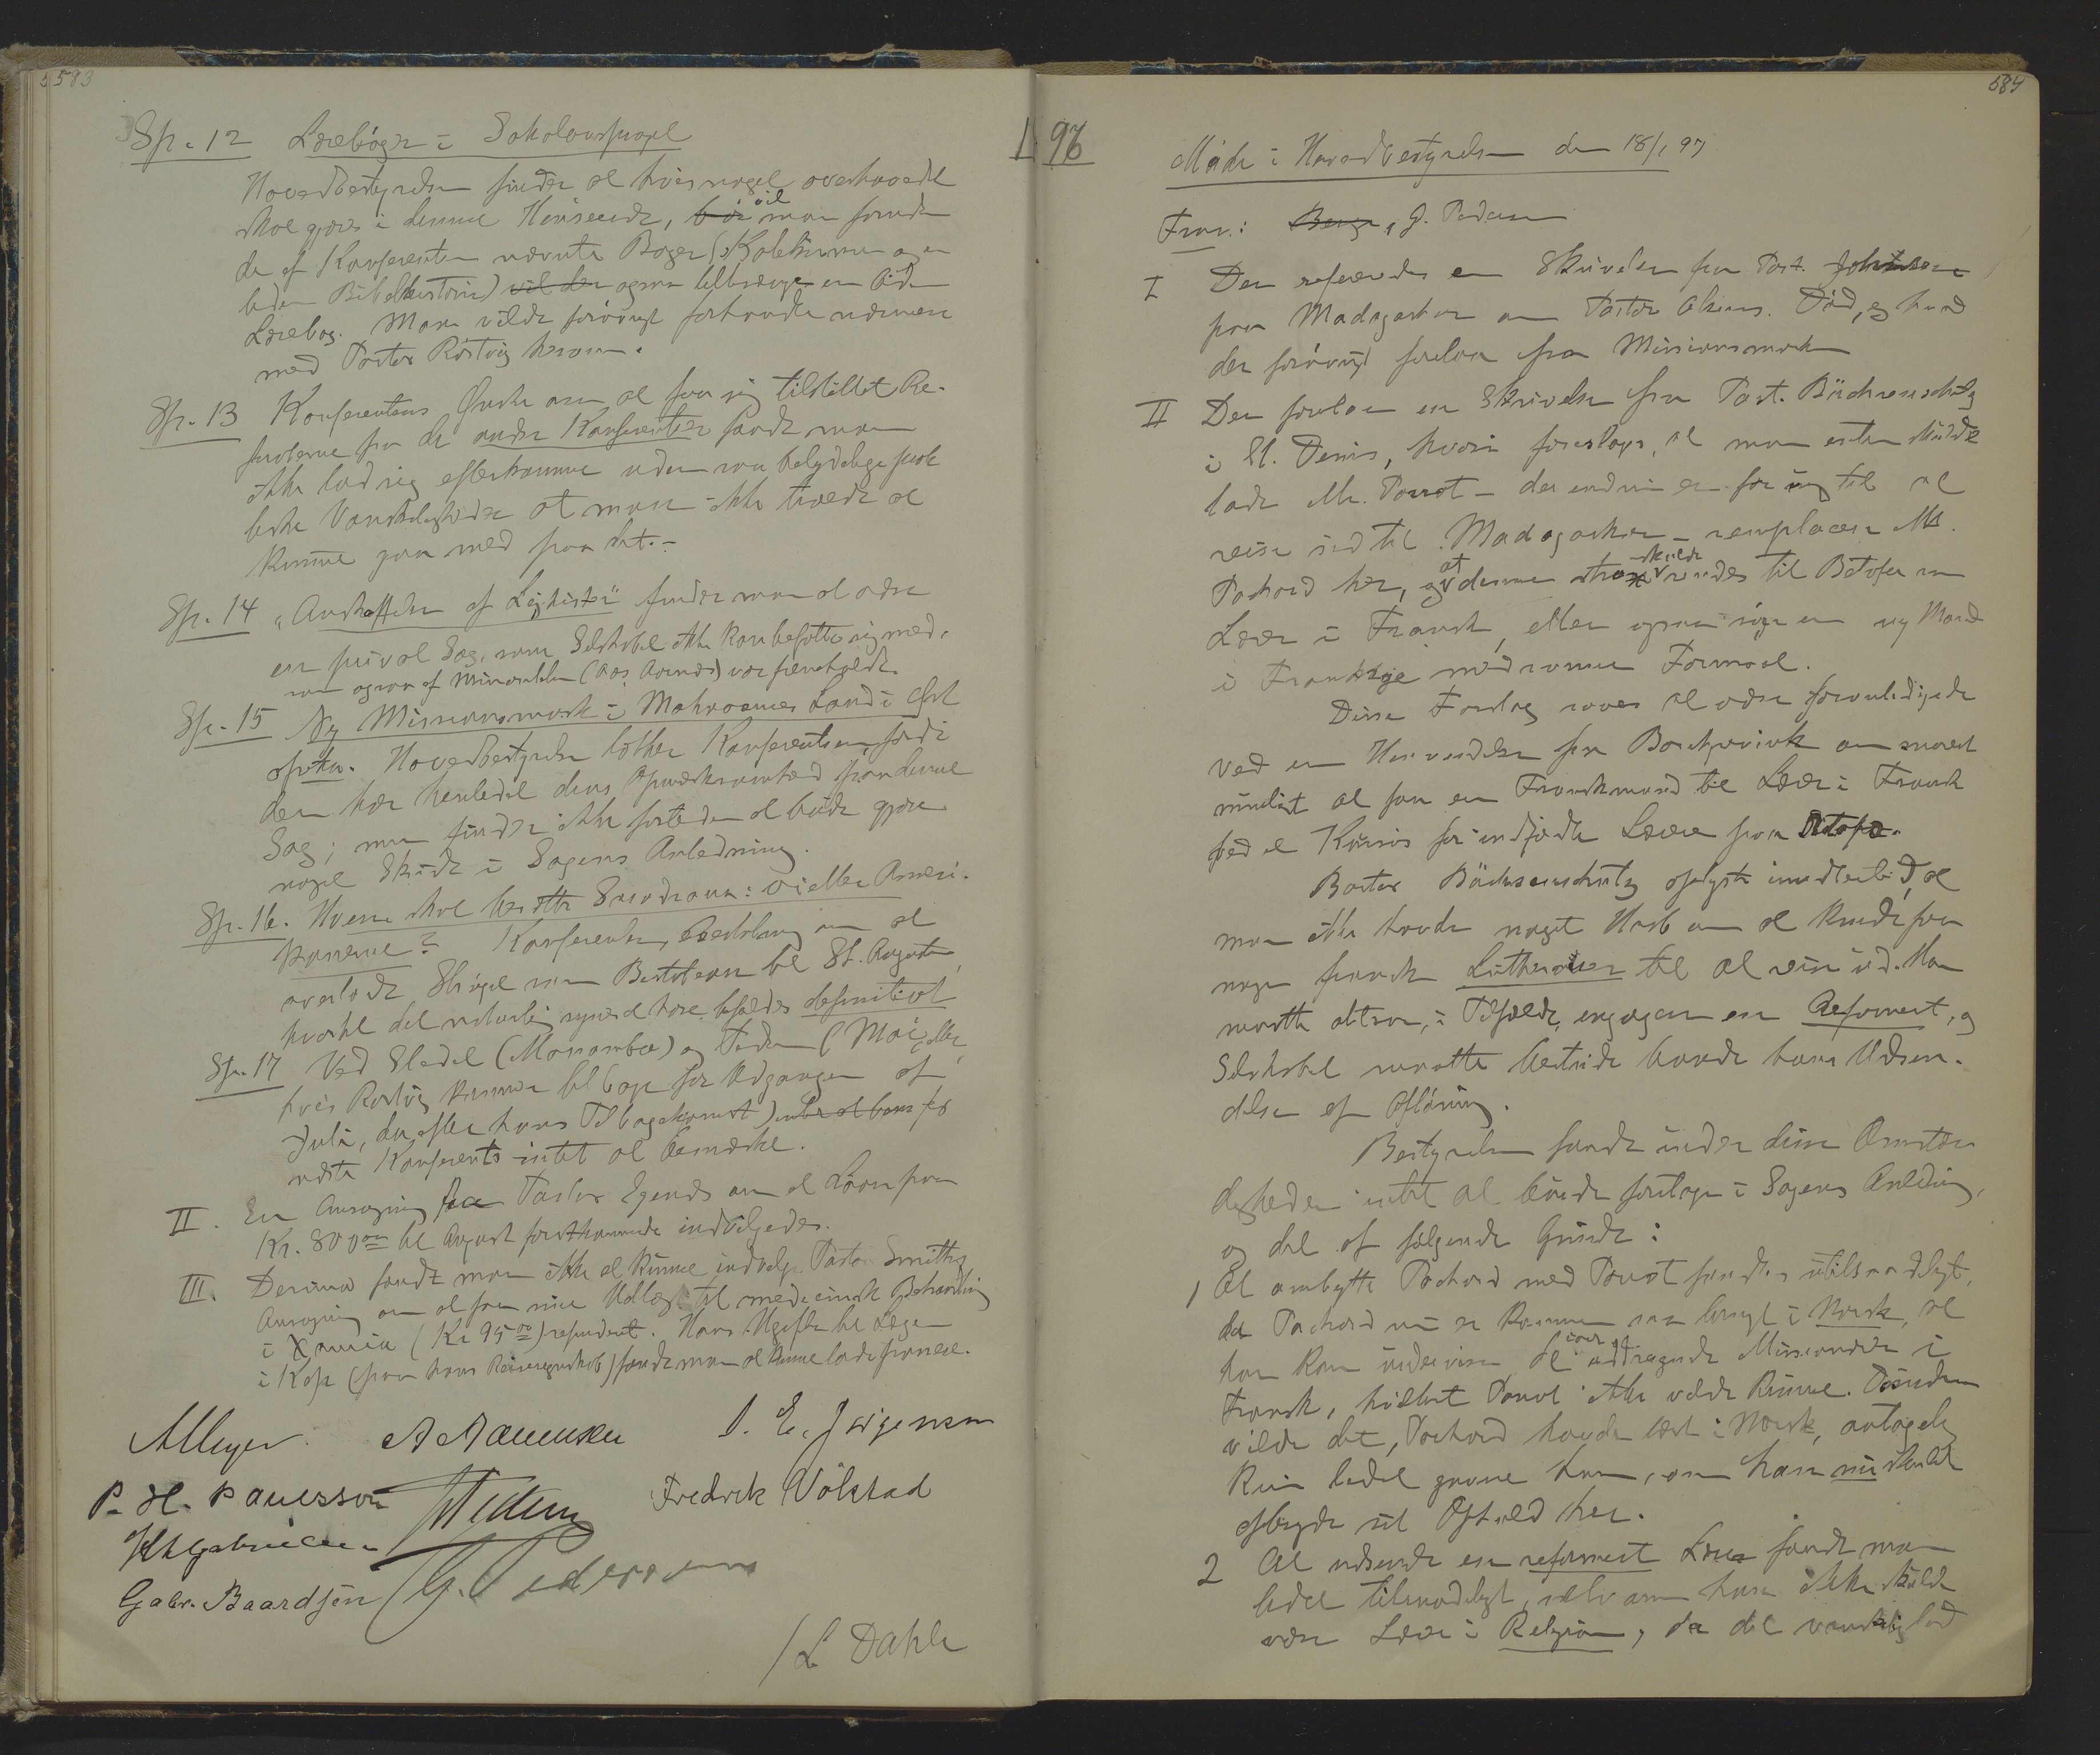 583
Sp. 12 Lærebøger i Sakalavsproget
Hovedbestyrelsen finder at hvis noget overhovedet
skal gjøres i denne Henseende, bør vil man foruden
de af Konferentsen nævnte Bøger (Katekismen og en
liden Bibelhistorie) vil der ogsaa tiltrænges en liden
Læsebog. Man vilde forøvrigt forhandle nærmere
med Pastor Röstvig herom.
Sp. 13 Konferentsens Ønske om at faa sig tilstillet Re-
feraterne fra de andre Konferentser fandt man
ikke lod sig efterkomme uden saa betydelige prak
tiske Vanskeligheder at man ikke troede at
kunne gaa med paa det.-
Sp. 14 "Anskaffelse af Ligkister" finder man at være
en privat Sag, som Selskabet ikke kan befatte sig med,
som ogsaa af Minoriteten (Aas Aarnes) var fremholdt.
Sp. 15 Ny Missionsmark i Mahraanes Land i Øst
afrika. Hovedbestyrelsen takker Konferentsen, fordi
den har henledet dens Opmærksomhed paa denne
Sag; men finder ikke for tiden at burde gjøre
noget Skridt i Sagens Anledning.
Sp. 16. Hvem skal besætte Saodrana: Vi eller Ameri-
kanerne? Konferentsen Beslutning om at
overlade Strøget som Bestskean til St. Augustin,
hvortil det naturlig synes at høre, bifaldes definitivt
Sp. 17 Ved Stedet (Morombe) og Tiden (Mai eller,
hvis Rostvig kommer tilbage før Udgangen af
Juli, da efter hans Tilbagekomst) for
næste Konferents intet at bemærke.
II. En Ansøgning fra Pastor Egenes om et Laan paa
Kr. 800 00 til August førstkommende indvilgedes.
III. Derimod fandt man ikke at kunne indvilge Pastor Smiths
Ansøgning om at faa sine Udlæg til medicinsk Behandling
i Xania (Kr 95 00) refunderet. Hans Udgifter til Læge
i Kap (paa hans Reiseregnskab) fandt man at kunne lade passere.
AMeyer. A Aanensen S. E. Jørgensen
P. H. Pauesson Fredrik Völstad
Gabr. Baardsen G. Pedersen
/L Dahle
584
1 96
Møde i Hovedbestyrelsen den 18/1 97
Frav.: Berge, J. Pedersen
I Der refereredes en Skrivelse fra Past. Johnson
paa Madagaskar om Pastor Olsens. Död, og hvad
der forøvrigt forelaa fra Missionsmarken
II Der forelaa en Skrivelse fra Past. Büchsenschütz
i St. Denis, hvori foresloges, at man enten skulde
lade Mr. Parrot - der endnu er for ung til at
reise ud til Madagaskar - remplacere Mr.
Pochard her, og at denne strax skulde sendes til Betafo som
Lærer i Fransk, eller ogsaa söge en ny Mand
i Frankrige med samme Formaal.
Disse Forslag saaes at være foranledigede
ved en Henvendelse fra Borchgrevink om snarest
muligt at faa en Franskmand til Lærer i Fransk
ved et Kursus for indfødte Lærere paa Betafo.
Pastor Büchsenschütz oplyste imidlertid, at
man ikke havde noget Haab om at kunde faa
nogen fransk Lutheraner til at reise ud. Man
maatte altsaa, i Tilfælde, engagere en Reformert, og
Selskabet maatte bestride baade hans Udsen-
delse og Aflöning.
Bestyrelsen fandt under disse Omstæn
digheder intet at burde foretage i Sagens Anledning,
og det af følgende Grunde:
1 At ombytte Pochard med Parrot fandtes utilraadeligt,
da Pochard nu er kommen saa langt i Norsk, at
han kan undervise de vordragende Missionærer i
Fransk, hvilket Parrot ikke vilde kunne. Desuden
vilde det, Pochard havde lært i Norsk, antagelig
kun lidet gavne ham, om han nu skulde
afbryde sit Ophold her.
2 At udsende en reformert Lærer fandt man
lidet tilraadeligt, selv om han ikke skulde
være Lærer i Religion, da det vanskelig lod